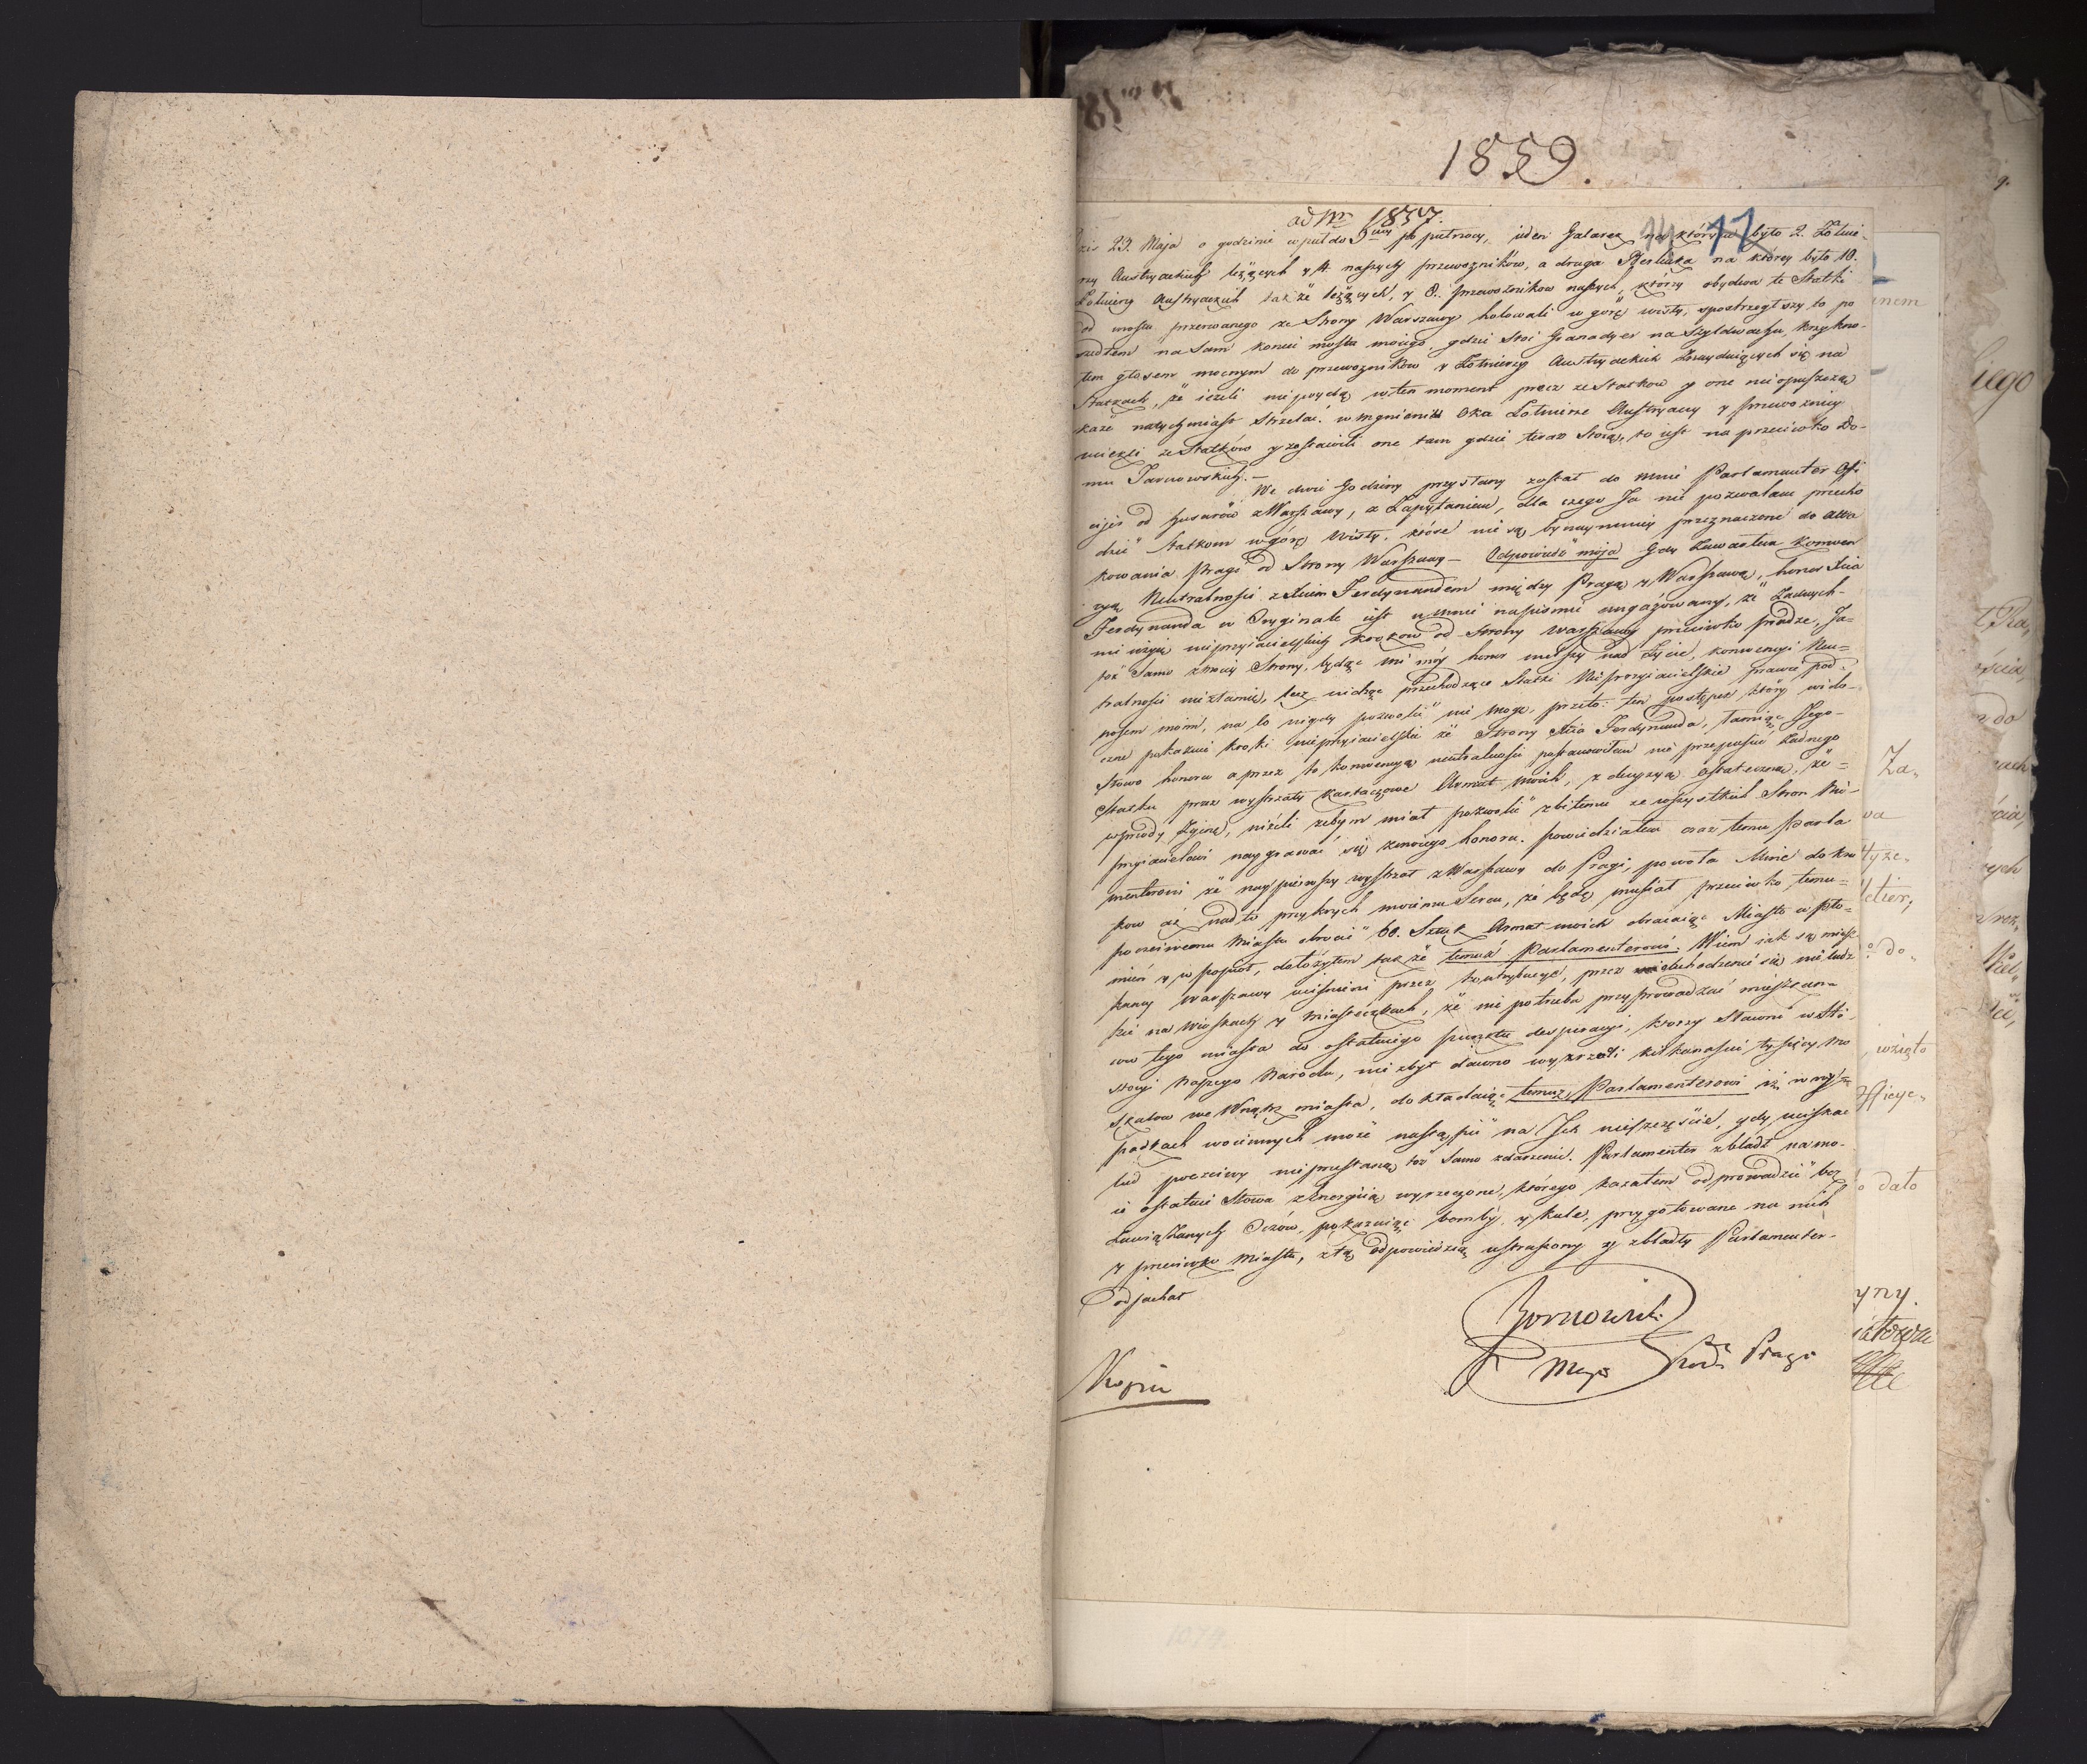 1859.
ad Nr 1857.
14 11
23. Maja o godzinie wpuł do 9tey po pułnocy, ieden Galarek na którym było 2. Żołnie-
rzy Austryackich leżących y 4. naszych przewozników, a druga Berlinka na którey było 10.
Żołnierzy Austryackich także leżących, y 8. przewozników naszych, którzy obydwa te Statki
od mostu przerwanego ze Strony Warszawy holowali w górę wisły, spostrzegłszy to po
szedłem na Sam koniec mostu moiego, gdzie Stoi Granadyer na Szyldwachu, krzykno-
łem głosem mocnym do przewozników y Żołnierzy Austryackich Znayduiących się na
Statkach, że ieżeli niepóydą w ten moment precz ze Statków y one nieopuszczą
każe natychmiast Strzelać. w mgnieniu Oka Żołnierze Austryaccy y przewoznicy
uciekli ze Statków y zostawili one tam gdzie teraz Stoią, to iest na przeciwko Do-
mu Tarnowskich.—
We dwie Godziny przysłany został do mnie Parlamenter Offi
cyer od Huzarów z Warszawy, z Zapytaniem, dla czego Ja nie pozwalam przecho
dzić Statkom w górę Wisły, które nie są bynaymniey przeznaczone do atta
kowania Pragi od Strony Warszawy — Odpowiedź moja Gdy Zawartem konwen
cyą Neutralności z Xciem Ferdynandem między Pragą y Warszawą, honor Xcia
Ferdynanda w Oryginale iest u mnie napismie engażowany, że Żadnych
mi użyie nieprzyiacielskich kroków od Strony Warszawy przeciwko Pradze, Ja
toż Samo z moiey Strony, będąc mi móy honor milszy nad Życie, konwencyi Neu-
tralności niezłamię, lecz widząc przechodzące Statki Nieprzyiacielskie prawie pod
nosem moim, na to nigdy pozwolić nie mogę, przeto: ten postępek który wido-
cznie pokazuie kroki nieprzyiacielskie ze Strony Xcia Ferdynanda, łamiąc Jego
Słowo honoru a przez to konwencyą neutralności postanowiłem nie przepuścić Żadnego
Statku przez wystrzały kartaczowe Armat moich, z decyzyą ostateczną, że
wprzódy Zginę, niżeli żebym miał pozwolić zbitemu ze wszystkich Stron Nie-
przyiacielowi naygrawać się z moiego honoru. powiedziałem oraz temu Parla
menterowi że naypierwszy wystrzał z Warszawy do Pragi, powoła Mnie do kro
ków aż nadto przykrych moiemu Sercu, że będę musiał przeciwko temu
poczciwemu Miastu obrócić 60. Sztuk Armat moich obracaiąc Miasto w pło-
mień y w popioł, dołożyłem także temuż Parlamenterowi. Wiem iak są miesz
kańcy Warszawy uciśnieni przez kontrybucye, przez obchodzenie się nieludz
kie na Wioskach y Miasteczkach, że nie potrzeba przyprowadzać mieszkań-
ców tego miasta do ostatniego punktu desperacyi, ktorzy Sławni w Hi-
storyi Naszego Narodu, nie zbyt dawno wyrzneli kilkanaście tysięcy Mo
skalów we Wnątrz miasta, dokładaiąc temuż Parlamenterowi iż w wy-
padkach woiennych może nastąpić na Ich nieszczęście, gdy uciskać
lud poczciwy nieprzestaną toż Samo zdarzenie. Parlamenter zbladł na mo-
ie ostatnie Słowa z Energiią wyrzeczone, którego kazałem odprowadzić bez
Zawiązanych Oczów, pokazuiąc bomby, y kule, przygotowane na nich
y przeciwko Miastu, z tą odpowiedzią ustraszony y zbladły Parlamenter
odjachał
Hornowski
Major Kdt Pragi
Kopia